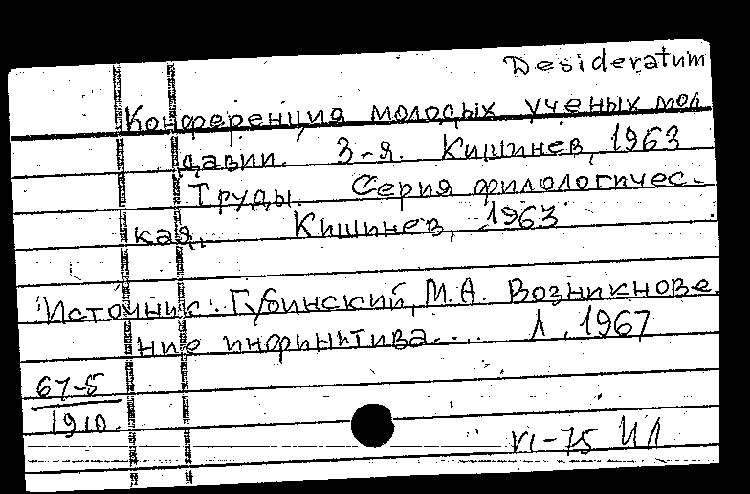 Desideratum
Конференция молодых ученых мол
давии. 3-я. Кишинев, 1963
Труды. Серия филологичес-
кая. Кишинев, 1963
Источник: Губинский, М.А. Возникнове
ние инфинитива.... Л., 1967
67-5
1910.
VI-75 ИЛ